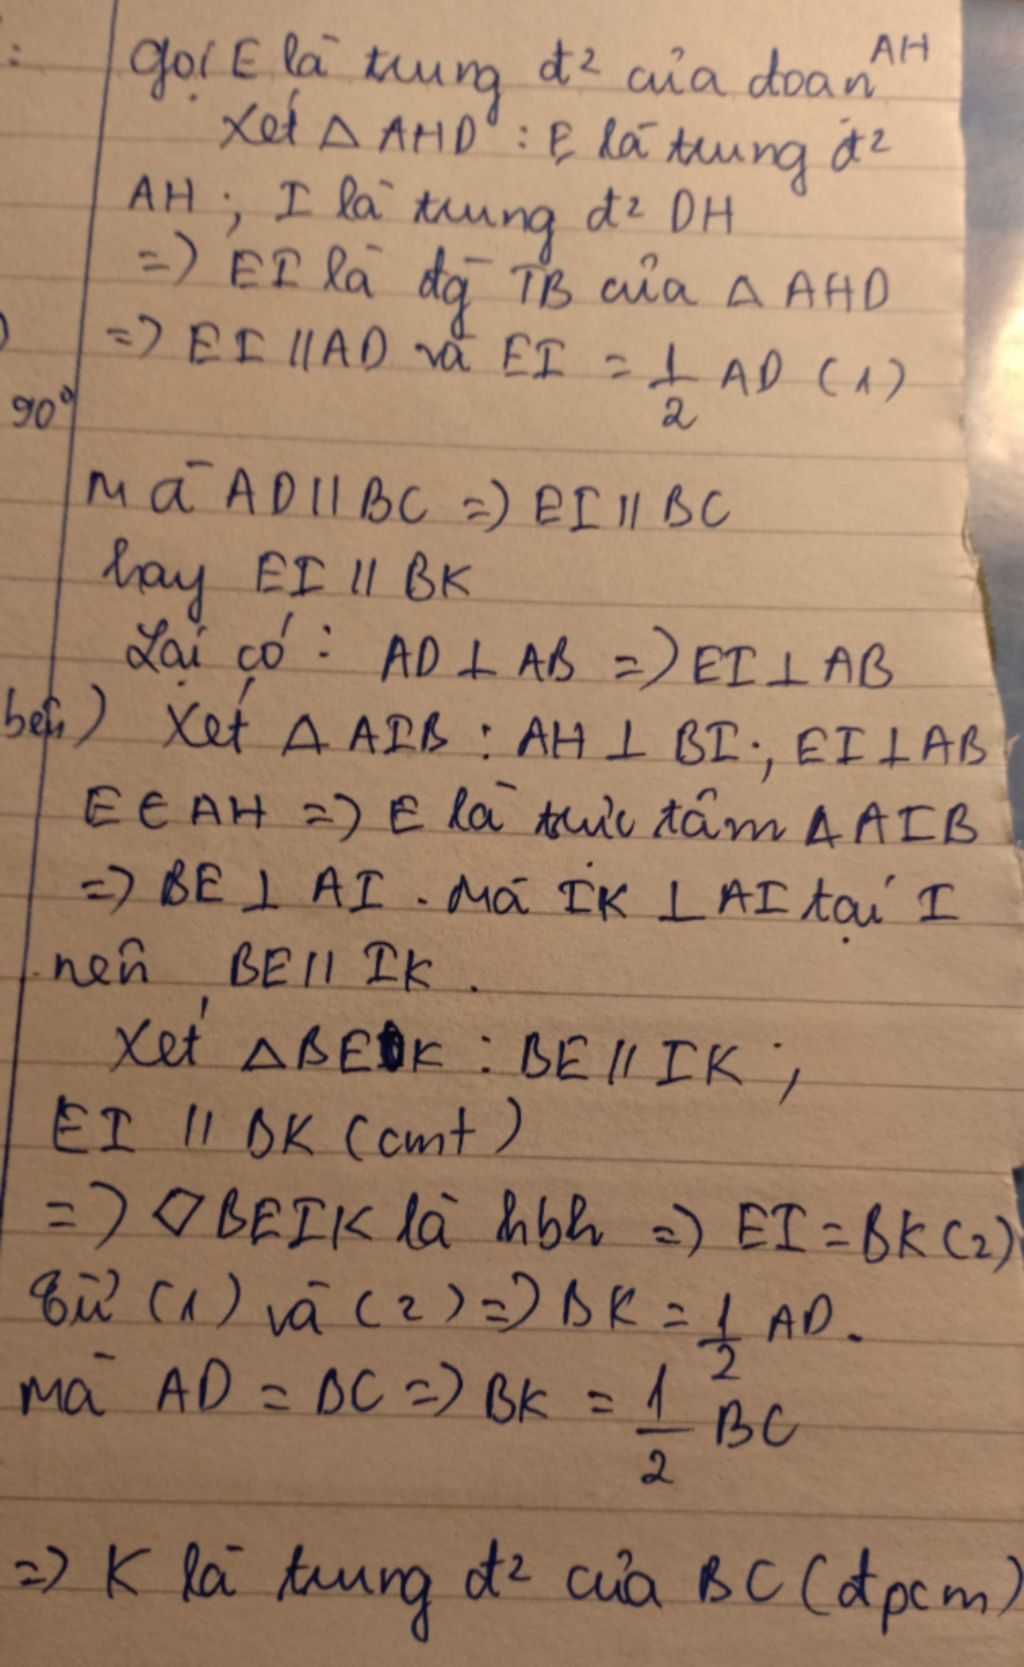 :
gọi E là trung đ² của đoạn AH
Xét △ AHD : E là trung đ²
AH ; I là trung đ² DH
=> EI là đg TB của △ AHD
=> EI // AD và EI = 1/2 AD (1)
90°
mà AD // BC => EI // BC
hay EI // BK
Lại có : AD ⊥ AB => EI ⊥ AB
bên) Xét △ AIB : AH ⊥ BI ; EI ⊥ AB
E ∈ AH => E là trực tâm △ AIB
=> BE ⊥ AI . Mà IK ⊥ AI tại I
nên BE // IK .
Xét △ BEIK : BE // IK ;
EI // BK (cmt)
=> ▱ BEIK là hbh => EI = BK (2)
Từ (1) và (2) => BK = 1/2 AD .
mà AD = BC => BK = 1/2 BC
=> K là trung đ² của BC (đpcm)